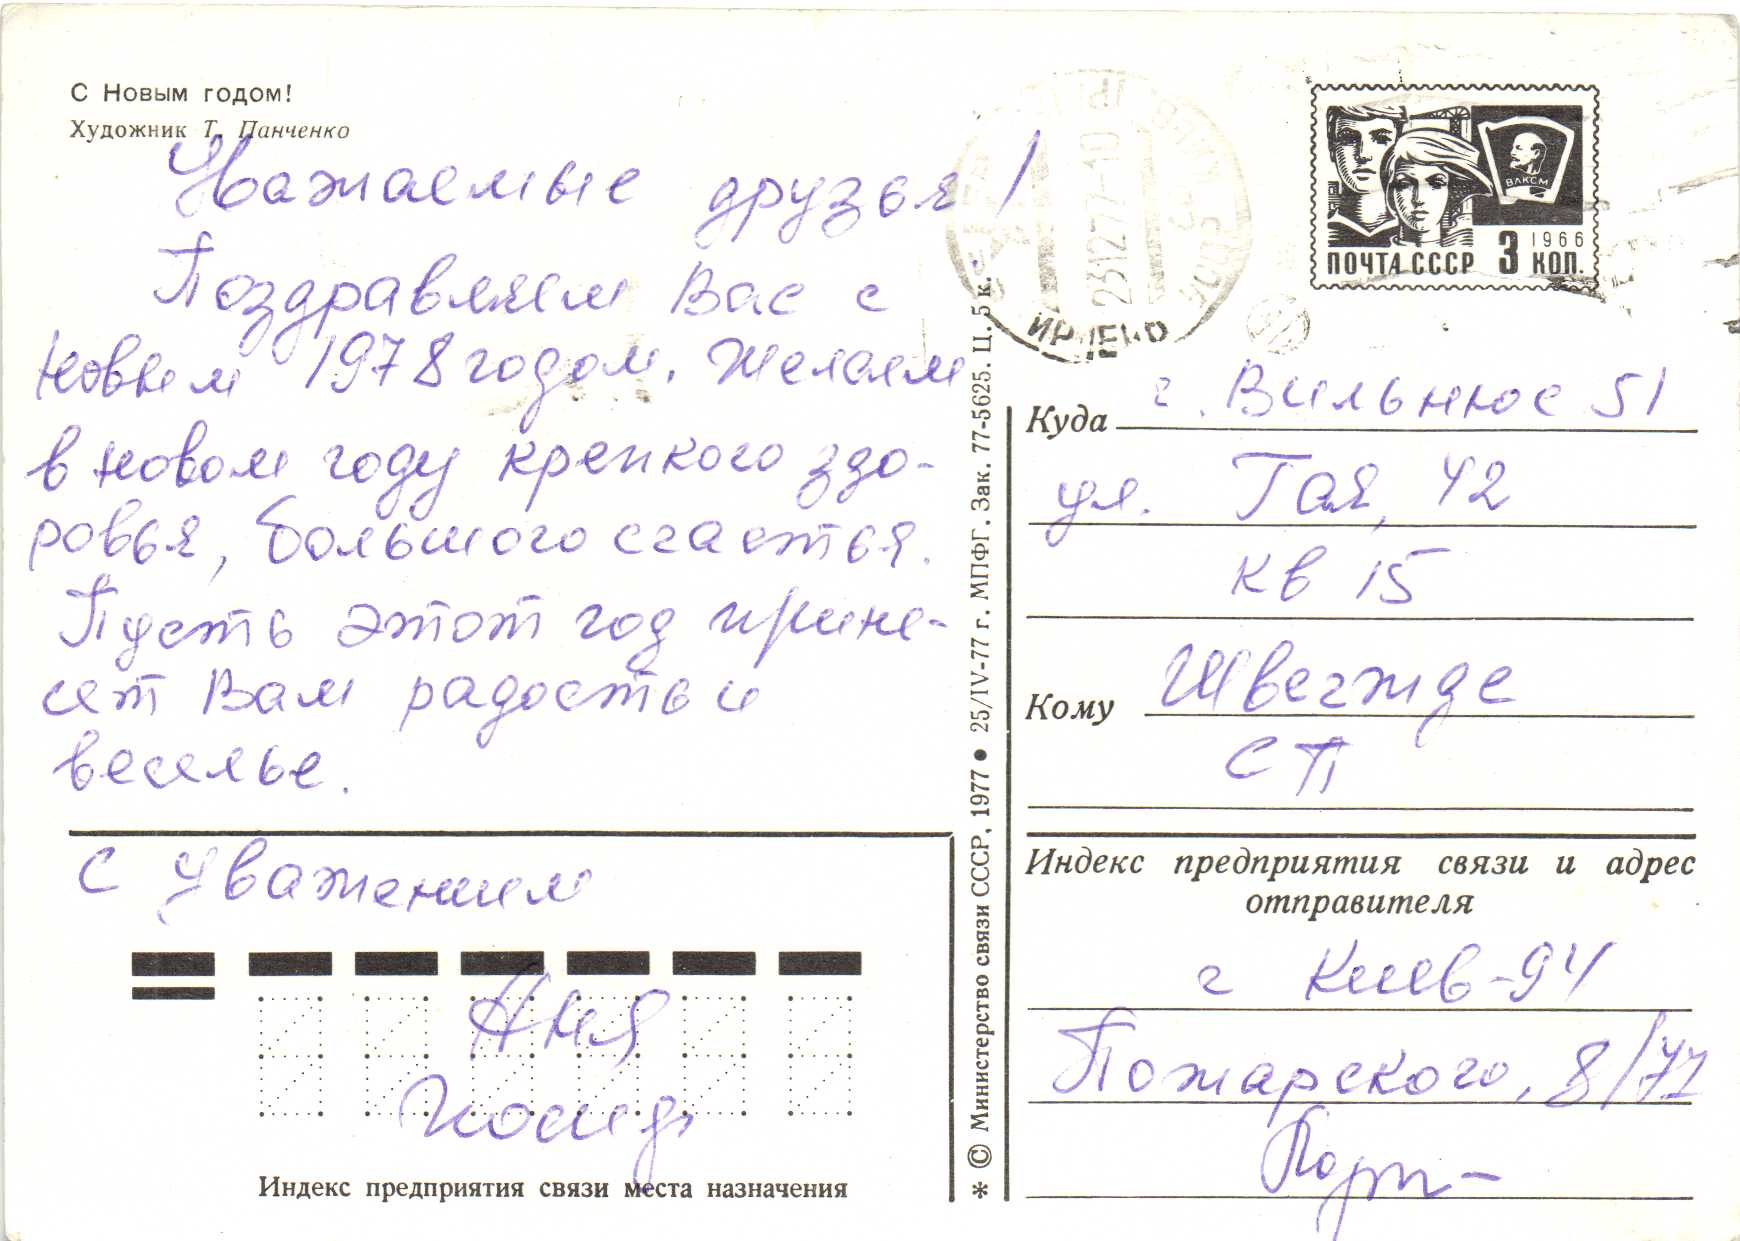 С Новым годом!
Художник Т. Панченко
Уважаемые друзья!
Поздравляем Вас с
Новым 1978 годом. Желаем
в новом году крепкого здо-
ровья, большого счастья.
Пусть этот год прине-
сет Вам радость и
веселье.
С уважением
Аня
Индекс предприятия связи места назначения
* © Министерство связи СССР, 1977 ● 25/IV-77 г. МПФГ. Зак. 77-5625. Ц. 5 к.
231277-10
ВЛКСМ
1966
ПОЧТА СССР 3 КОП.
Куда г. Вильнюс 51
ул. Гая, 42
кв 15
Кому Швегжде
СП
Индекс предприятия связи и адрес
отправителя
г Киев-94
Пожарского, 8/71